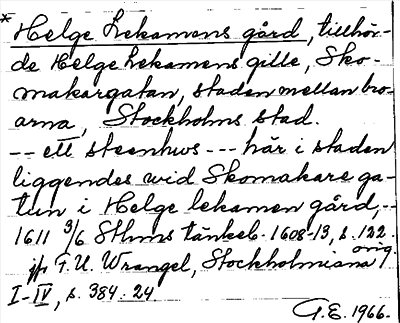 * Helge Lekamens gård, tillhör-
de Helge Lekamens gille, Sko-
makargatan, staden mellan bro-
arna, Stockholms stad.
-- ett steenhws --- här i staden
liggendes wid Skomakare ga-
tun i Helge lekamen gård, --
1611 3/6 Sthms tänkeb. 1608-13, s. 122.
orig.
jfr F. U. Wrangel, Stockholmiana
I-IV, s. 384: 24
G.E. 1966.